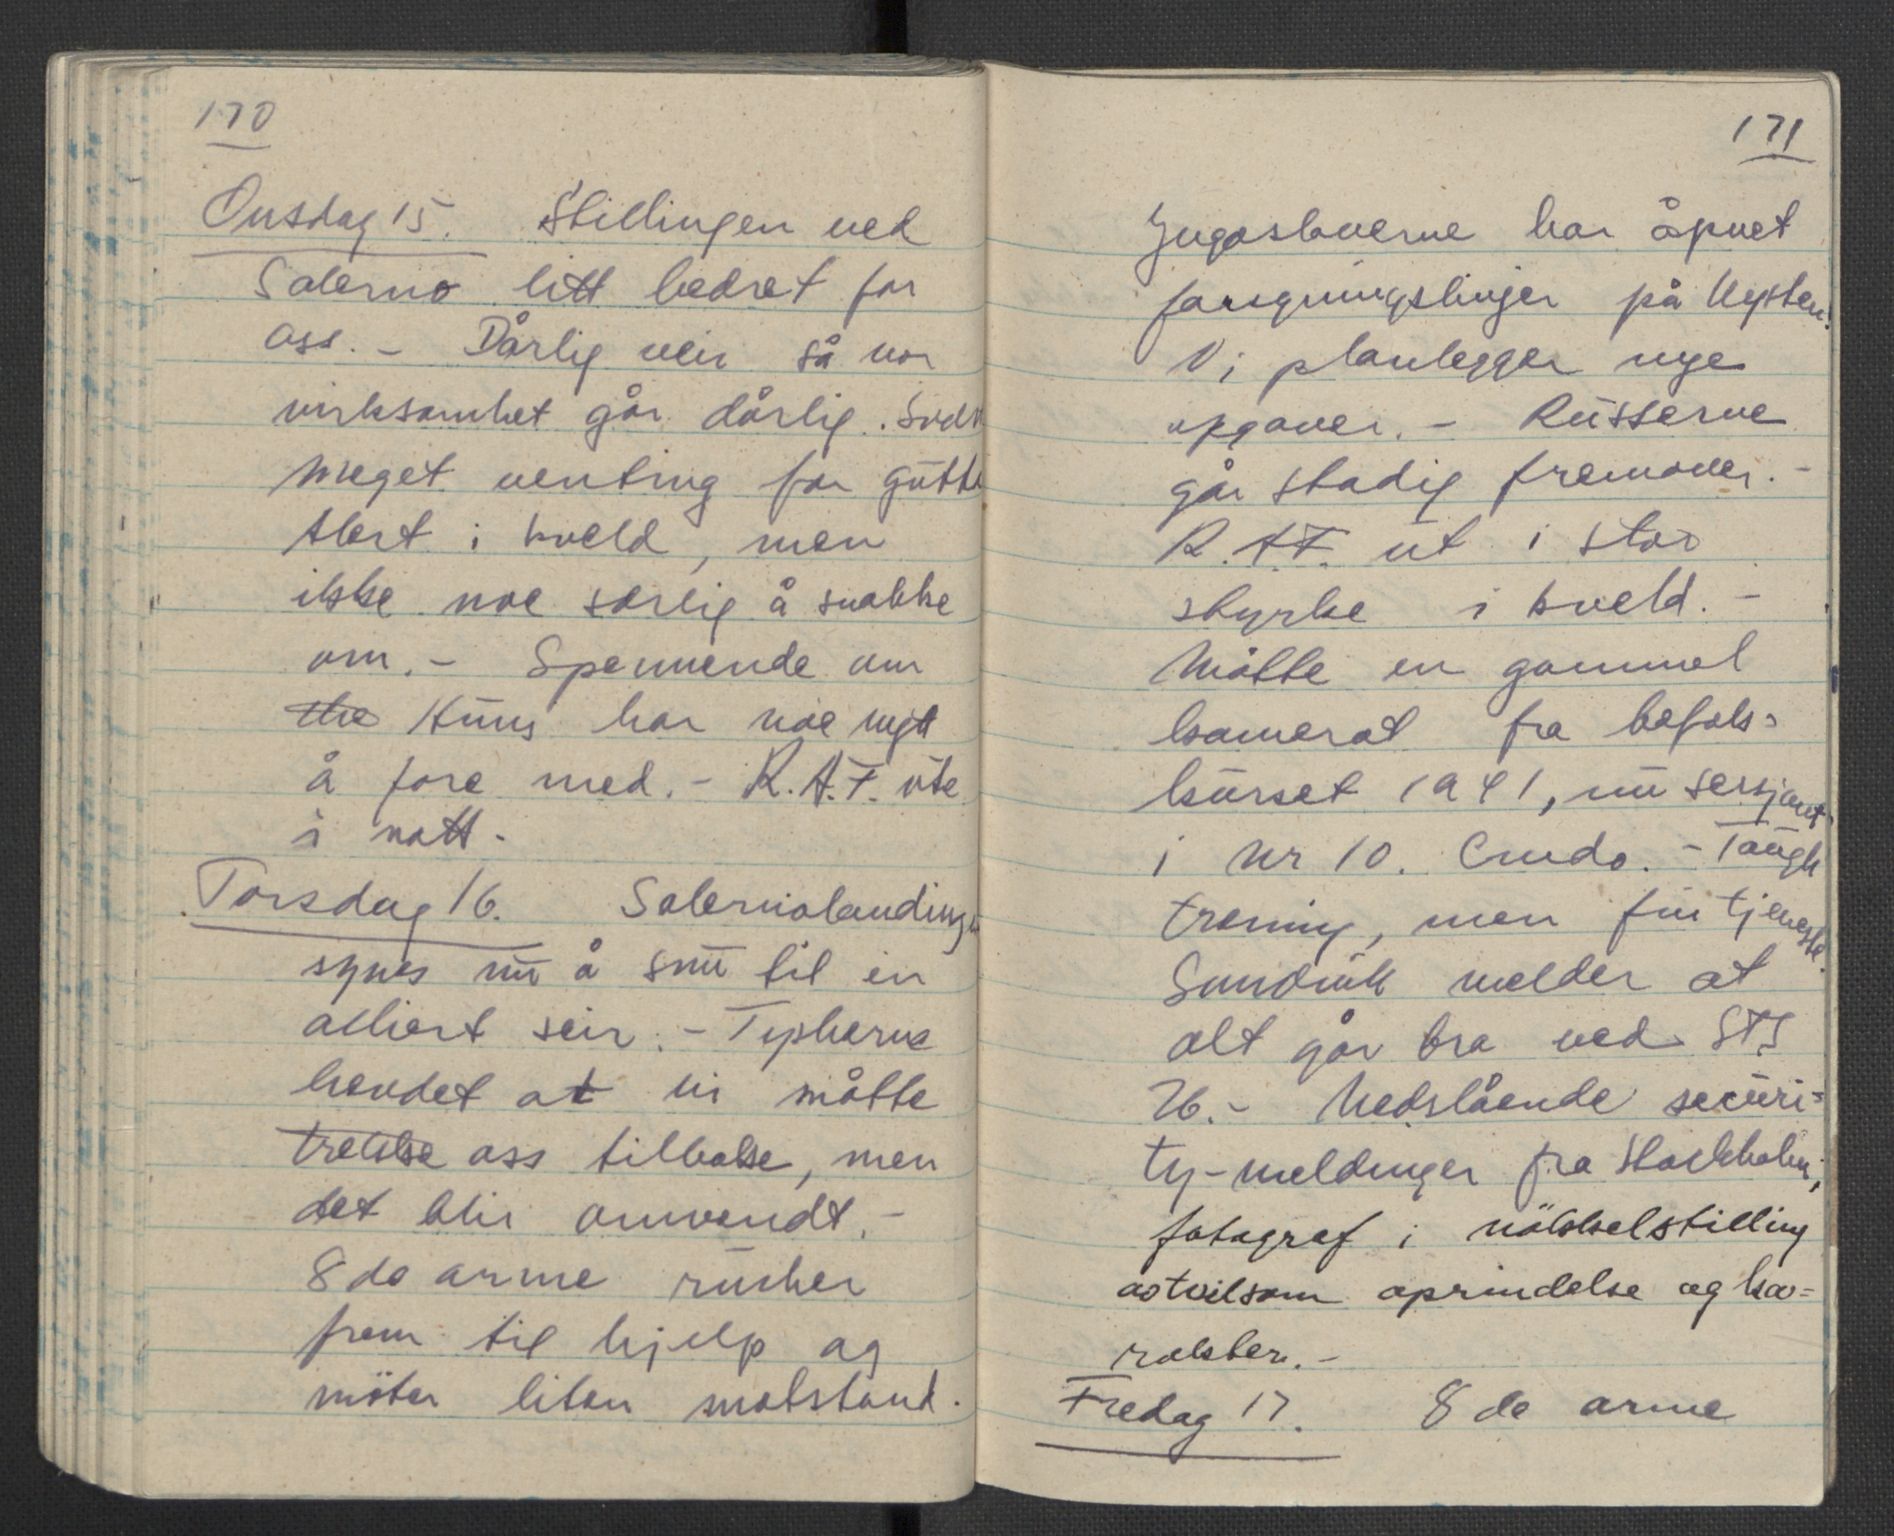 170
Onsdag 15. Stillingen ved
Salerno litt bedret for
oss. - Dårlig veir så vor
virksomhet går dårlig.
Meget venting for gutte
Alert i kveld, men
ikke noe særlig å snakke
om. - Spennende om
the Huns har noe nytt
å fare med. - R.A.F. ute
i natt.
Torsdag 16. Salernolandingen
synes nu å snu til en
alliert seir. - Tyskerne
hevdet at vi måtte
trekke oss tilbake, men
det blir omvendt. -
8de arme rusher
frem til hjelp og
möter liten motstand.
171
Jugoslaverne har åpnet
forsyningslinjer på kysten.
Vi planlegger nye
opgaver. - Russerne
går stadig fremover. -
R.A.F. ut i stor
styrke i kveld. -
Måtte en gammel
kamerat fra befals=
kurset 1941, nu sersjant
i Nr 10. Cmdo. - Tough
trening, men fin tjeneste.
melder at
alt går bra ved STS
26. - Nedslående securi=
ty-meldinger fra Stockholm;
fotograf i nökkelstilling
av tvilsom oprindelse og ka=
rakter. -
Fredag 17. 8de arme